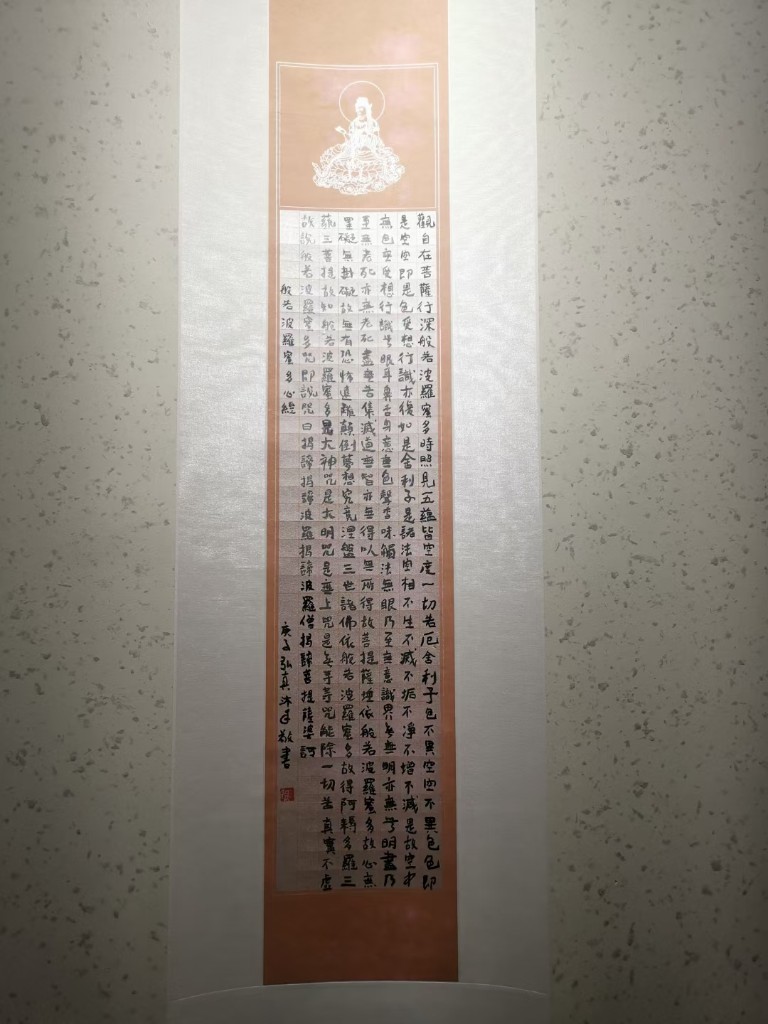 觀自在菩薩行深般若波羅蜜多時照見五蘊皆空度一切苦厄舍利子色不異空空不異色色即
是空空即是色受想行識亦復如是舍利子是諸法空相不生不滅不垢不淨不增不減是故空中
無色無受想行識無眼耳鼻舌身意無色聲香味觸法無眼乃至無意識界無無明亦無無明盡乃
至無老死亦無老死盡無苦集滅道無智亦無得以無所得故菩提薩埵依般若波羅蜜多故心無
罣礙無罣礙故無有恐怖遠離顛倒夢想究竟涅盤三世諸佛依般若波羅蜜多故得阿耨多羅三
藐三菩提故知般若波羅蜜多是大神咒是大明咒是無上咒是無等等咒能除一切苦真實不虛
故說般若波羅蜜多咒即說咒曰揭諦揭諦波羅揭諦波羅僧揭諦菩提薩婆訶
般若波羅蜜多心經
庚子弘真沐手敬書